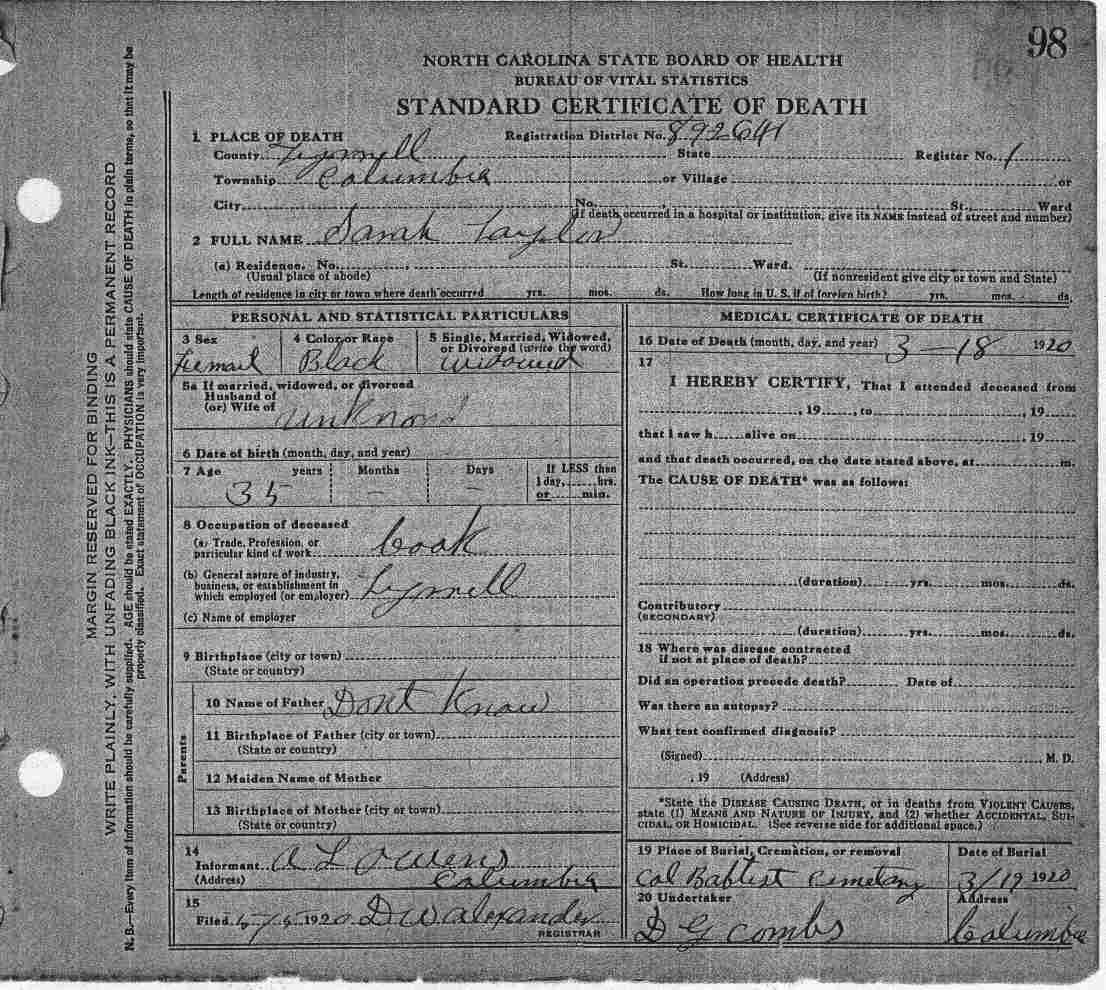 98
NORTH CAROLINA STATE BOARD OF HEALTH
BUREAU OF VITAL STATISTICS
STANDARD CERTIFICATE OF DEATH
1 PLACE OF DEATH Registration District No. 892641
County Tyrrell State Register No. 1
Township Columbia or Village or
City No. , St. Ward
(If death occurred in a hospital or institution, give its NAME instead of street and number)
2 FULL NAME Sarah Taylor
(a) Residence. No. , St. Ward.
(Usual place of abode) (If nonresident give city or town and State)
Length of residence in city or town where death occurred yrs. mos. ds. How long in U. S. if of foreign birth? yrs. mos. ds.
PERSONAL AND STATISTICAL PARTICULARS
3 Sex 4 Color or Race 5 Single, Married, Widowed,
or Divorced (write the word)
Femail Black Widowed
5a If married, widowed, or divorced
Husband of
(or) Wife of unknown
6 Date of birth (month, day, and year)
7 Age years Months Days If LESS than
1 day, hrs.
or min.
35 – –
8 Occupation of deceased
(a) Trade, Profession, or
particular kind of work Cook
(b) General nature of industry,
business, or establishment in
which employed (or employer) Tyrrell
(c) Name of employer
9 Birthplace (city or town)
(State or country)
Parents
10 Name of Father Dont Know
11 Birthplace of Father (city or town)
(State or country)
12 Maiden Name of Mother
13 Birthplace of Mother (city or town)
(State or country)
14
Informant A L Owens
(Address) Columbia
15
Filed 1920 D W Alexander
REGISTRAR
MEDICAL CERTIFICATE OF DEATH
16 Date of Death (month, day, and year) 3-18 1920
17
I HEREBY CERTIFY, That I attended deceased from
, 19 , to , 19
that I saw h alive on , 19
and that death occurred, on the date stated above, at m.
The CAUSE OF DEATH* was as follows:
(duration) yrs. mos. ds.
Contributory
(SECONDARY)
(duration) yrs. mos. ds.
18 Where was disease contracted
if not at place of death?
Did an operation precede death? Date of
Was there an autopsy?
What test confirmed diagnosis?
(Signed) M. D.
, 19 (Address)
*State the DISEASE CAUSING DEATH, or in deaths from VIOLENT CAUSES,
state (1) MEANS AND NATURE OF INJURY, and (2) whether ACCIDENTAL, SUI-
CIDAL, OR HOMICIDAL. (See reverse side for additional space.)
19 Place of Burial, Cremation, or removal Date of Burial
Col Babtist Cemetary 3/19 1920
20 Undertaker Address
D G Combs Columbia
MARGIN RESERVED FOR BINDING
WRITE PLAINLY, WITH UNFADING BLACK INK—THIS IS A PERMANENT RECORD
N. B.—Every item of information should be carefully supplied. AGE should be stated EXACTLY. PHYSICIANS should state CAUSE OF DEATH in plain terms, so that it may be
properly classified. Exact statement of OCCUPATION is very important.